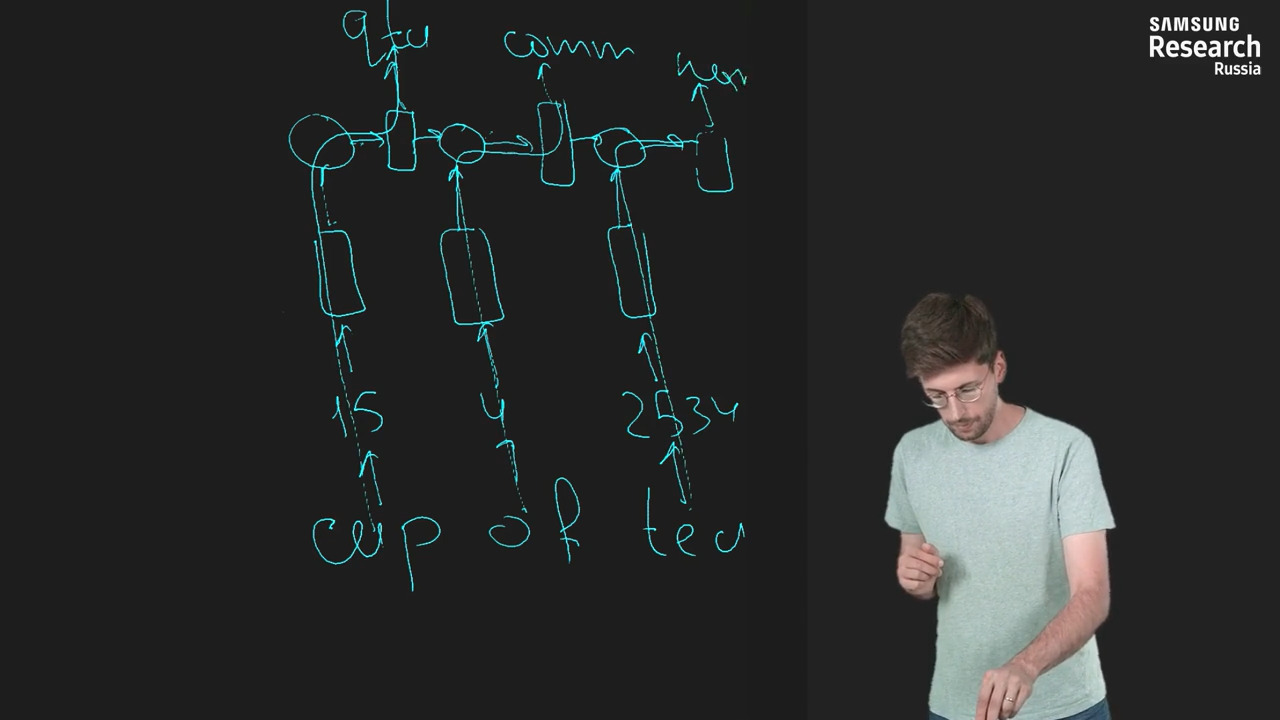 SAMSUNG
Research
Russia
qty
comm
15
4
2534
cup of tea